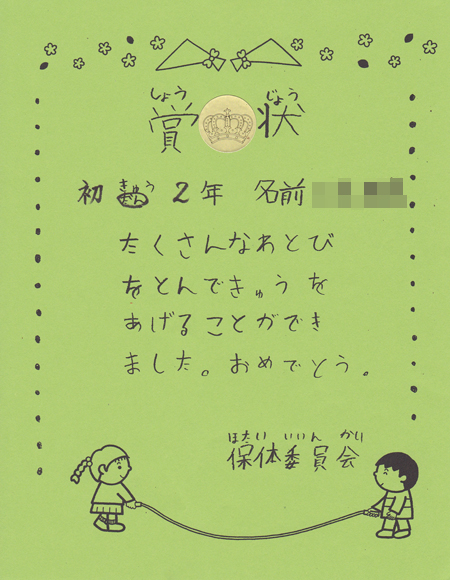 しょう じょう
賞状
きゅう
初 2年 名前
たくさんなわとび
をとんできゅうを
あげることができ
ました。おめでとう。
ほたい いいん かい
保体委員会